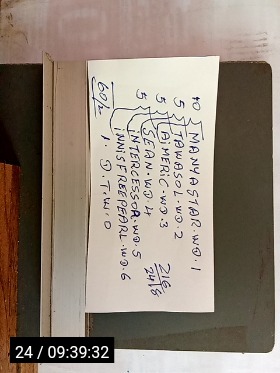 10 MANYASTAR.WD.1
5 TAWASOL.WD.2
5 AIMERIC.WD.3
5 SEAN.WD.4
INTERCESSOR.WD.5
INNISFREEPEARL.WD.6
1. D.T.W.O
24 / 09:39:32